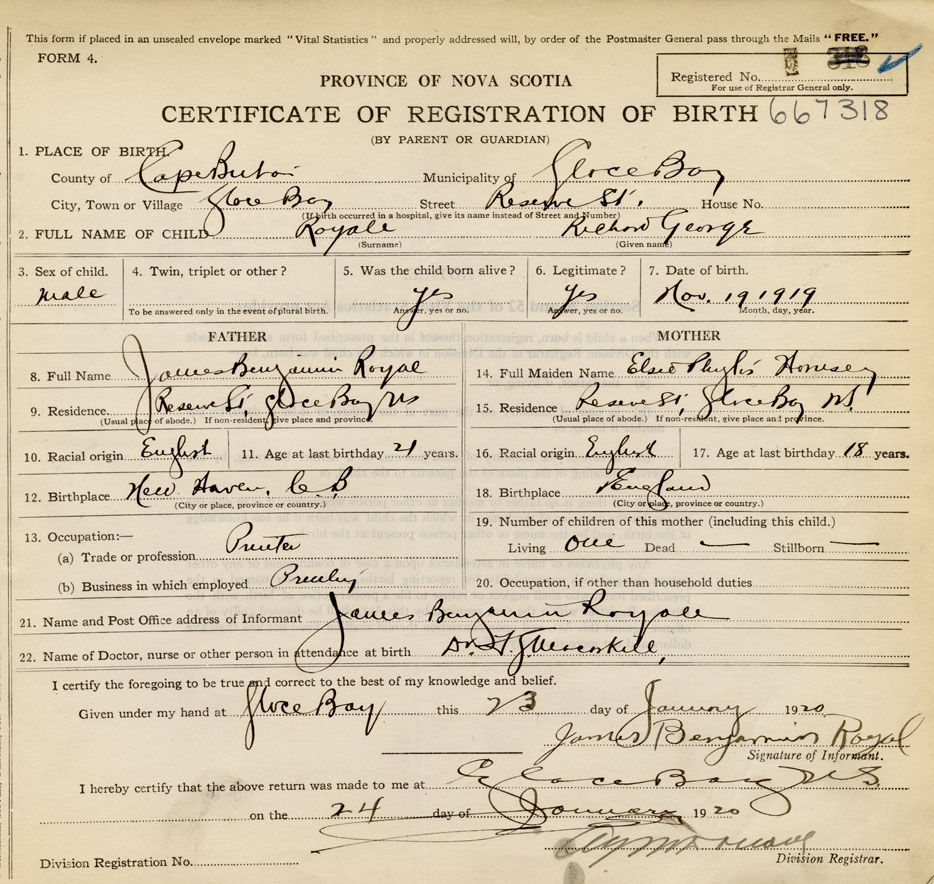 This form if placed in an unsealed envelope marked "Vital Statistics" and properly addressed will, by order of the Postmaster General pass through the Mails "FREE."
FORM 4.
318
Registered No.
For use of Registrar General only.
PROVINCE OF NOVA SCOTIA
CERTIFICATE OF REGISTRATION OF BIRTH 667318
(BY PARENT OR GUARDIAN)
1. PLACE OF BIRTH.
County of Cape Breton Municipality of Glace Bay
City, Town or Village Glace Bay Street Reserve St. House No.
(If birth occurred in a hospital, give its name instead of Street and Number)
2. FULL NAME OF CHILD Royale Richard George
(Surname) (Given name)
3. Sex of child. 4. Twin, triplet or other? 5. Was the child born alive? 6. Legitimate? 7. Date of birth.
male yes yes Nov. 19 1919
To be answered only in the event of plural birth. Answer, yes or no. Answer, yes or no. Month, day, year.
FATHER MOTHER
8. Full Name James Benjamin Royal 14. Full Maiden Name Elsie Phylis
9. Residence Reserve St, Glace Bay NS 15. Residence Reserve St, Glace Bay N.S.
(Usual place of abode.) If non-resident, give place and province. (Usual place of abode.) If non-resident, give place and province.
10. Racial origin English 11. Age at last birthday 21 years. 16. Racial origin English 17. Age at last birthday 18 years.
12. Birthplace New Haven, C.B 18. Birthplace England
(City or place, province or country.) (City or place, province or country.)
19. Number of children of this mother (including this child.)
13. Occupation:—
(a) Trade or profession Printer Living one Dead — Stillborn —
(b) Business in which employed Printing 20. Occupation, if other than household duties
21. Name and Post Office address of Informant James Benjamin Royale
22. Name of Doctor, nurse or other person in attendance at birth Dr.
I certify the foregoing to be true and correct to the best of my knowledge and belief.
Given under my hand at Glace Bay this 23 day of January 1920
James Benjamin Royal
Signature of Informant.
I hereby certify that the above return was made to me at Glace Bay NS
on the 24 day of January 1920
Division Registration No. Division Registrar.